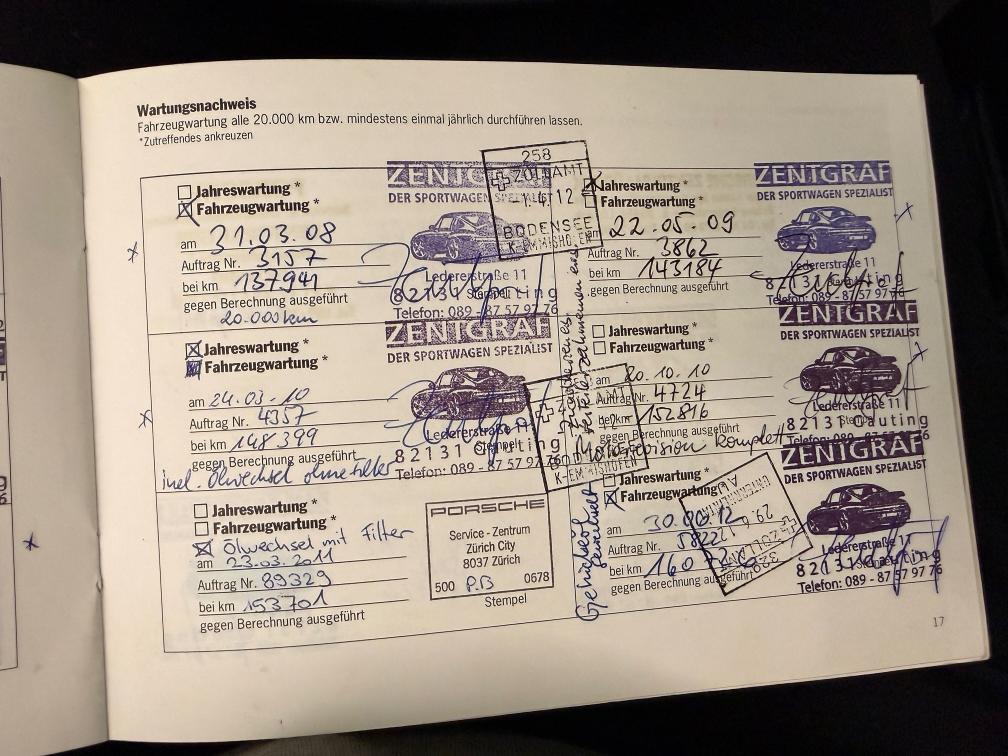 Wartungsnachweis
Fahrzeugwartung alle 20.000 km bzw. mindestens einmal jährlich durchführen lassen.
*Zutreffendes ankreuzen
Jahreswartung *
Fahrzeugwartung *
am 31.03.08
Auftrag Nr. 3157
bei km 137941
gegen Berechnung ausgeführt
20.000 km
ZENTGRAF
DER SPORTWAGEN SPEZIALIST
Ledererstraße 11
82131 Gauting
Stempel
Telefon: 089 - 87 57 97 76
258
ZOLLAMT
12
BODENSEE
K-EMMISHOFEN
Jahreswartung *
Fahrzeugwartung *
am 22.05.09
Auftrag Nr. 3862
bei km 143184
gegen Berechnung ausgeführt
ZENTGRAF
DER SPORTWAGEN SPEZIALIST
Ledererstraße 11
82131 Gauting
Stempel
Telefon: 089 - 87 57 97 76
Jahreswartung *
Fahrzeugwartung *
am 24.03.10
Auftrag Nr. 4357
bei km 148399
gegen Berechnung ausgeführt
incl. Ölwechsel ohne Filter
ZENTGRAF
DER SPORTWAGEN SPEZIALIST
Ledererstraße 11
Stempel
82131 Gauting
Telefon: 089 - 87 57 97 76
K-EMMISHOFEN
Jahreswartung *
Fahrzeugwartung *
am 20.10.10
Auftrag Nr. 4724
bei km 152816
gegen Berechnung ausgeführt
Motorrevision komplett
ZENTGRAF
DER SPORTWAGEN SPEZIALIST
Ledererstraße 11
82131 Gauting
Stempel
Telefon: 089 - 87 57 97 76
Jahreswartung *
Fahrzeugwartung *
Ölwechsel mit Filter
am 23.03.2011
Auftrag Nr. 89329
bei km 153701
gegen Berechnung ausgeführt
PORSCHE
Service - Zentrum
Zürich City
8037 Zürich
500 P.B 0678
Stempel
Jahreswartung *
Fahrzeugwartung *
am
Auftrag Nr.
bei km
gegen Berechnung ausgeführt
ZENTGRAF
DER SPORTWAGEN SPEZIALIST
Ledererstraße 11
82131 Gauting
Stempel
Telefon: 089 - 87 57 97 76
17